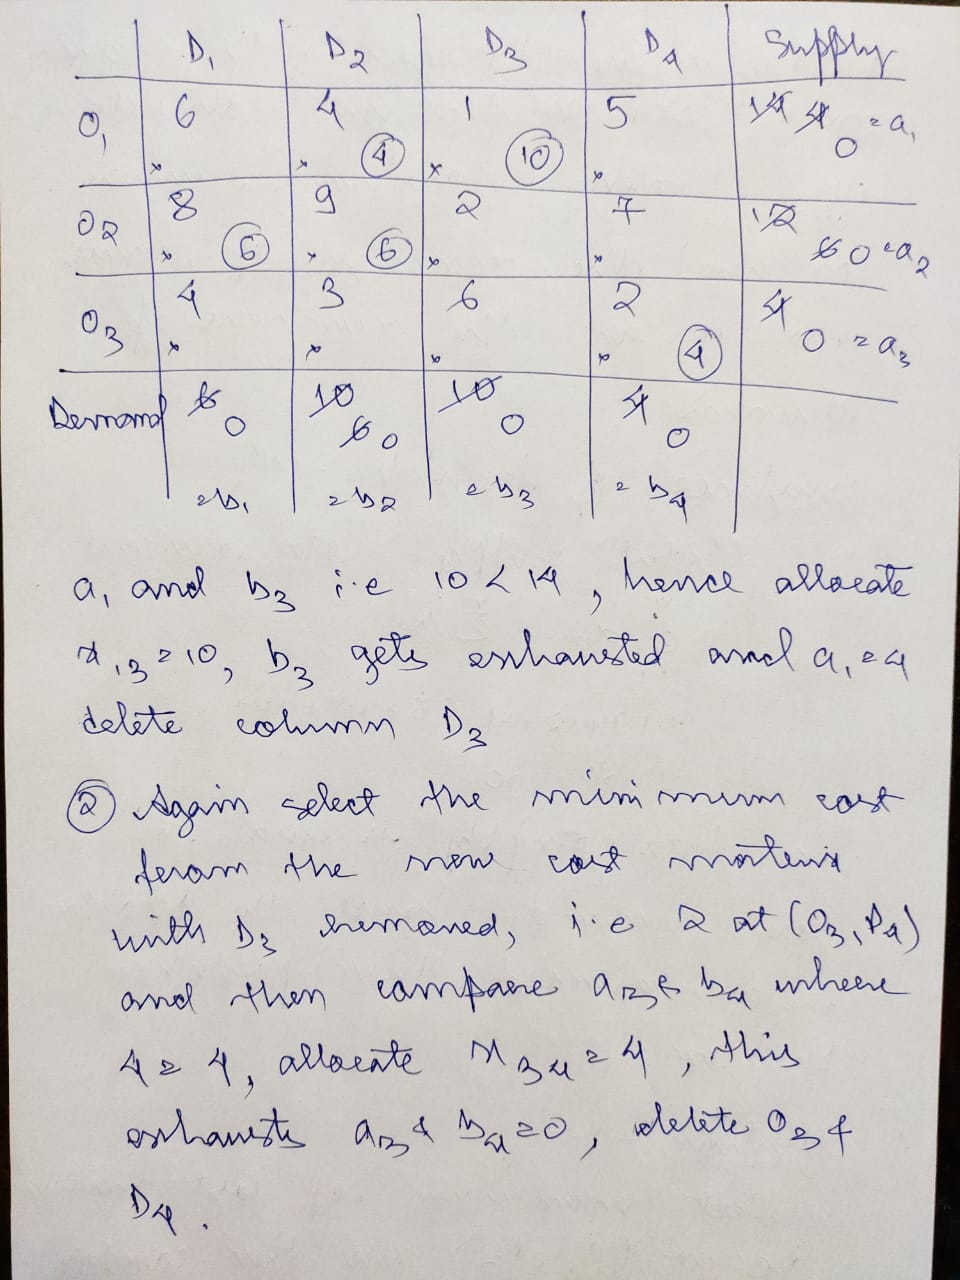 D1 D2 D3 D4 Supply
O1 6 4 1 5 14 4 0 = a1
x x 4 x 10 x
O2 8 9 2 7 12 6 0 = a2
x 6 x 6 x x
O3 4 3 6 2 4 0 = a3
x x x x 4
Demand 6 0 10 6 0 10 0 4 0
= b1 = b2 = b3 = b4
a1 and b3 i.e 10 < 14, hence allocate
x13 = 10, b3 gets exhausted and a1 = 4
delete column D3
② Again select the minimum cost
from the new cost matrix
with D3 removed, i.e 2 at (O3, D4)
and then compare a3 & b4 where
4 = 4, allocate x34 = 4, this
exhausts a3 & b4 = 0, delete O3 &
D4.